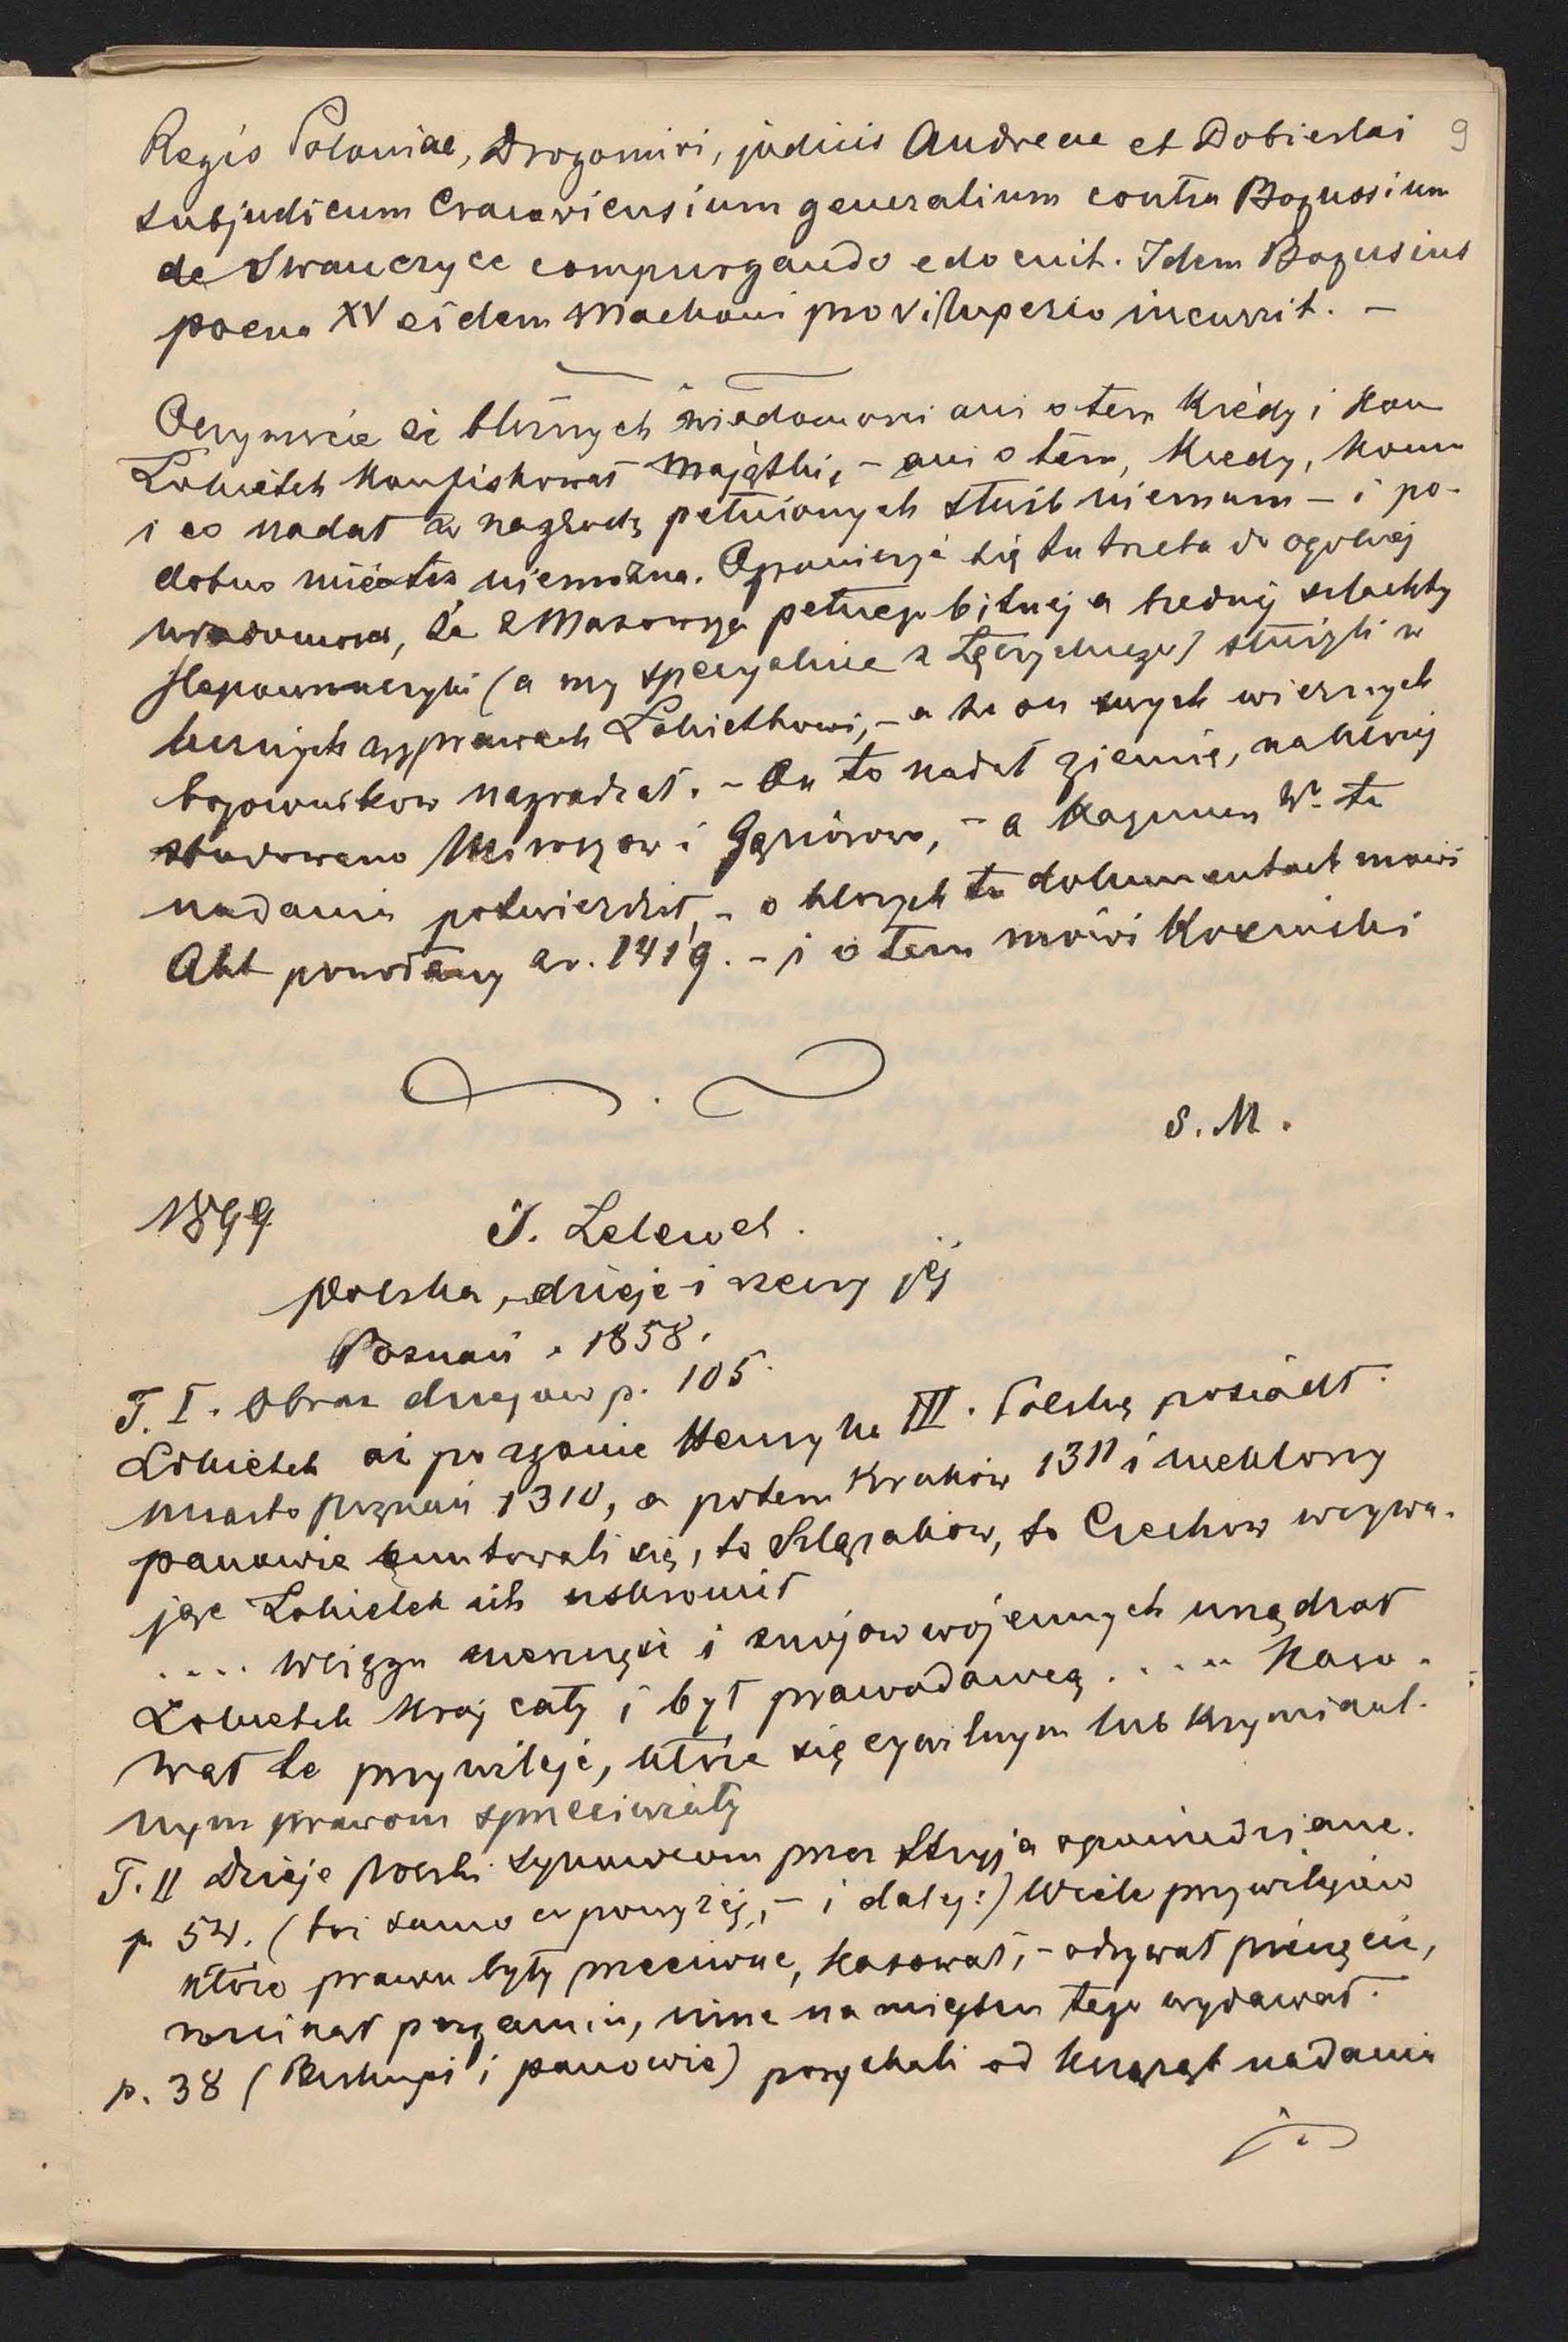 9
Regis Poloniae, Drogomiri, judicis Andreae et Dobieslai
subjudicum Cracoviensium generalium contra Bogussium
de Iwanczyce compurgando edocuit. Idem Bogusius
poena XV eidem Machoni pro vituperio incurrit. –
Oczywiście że bliższych wiadomości ani o tem kiedy i kom
Łokietek konfiskował majątki, – ani o tem, kiedy, komu
i co nadał w nagrodę pełnionych służb niemam – i po-
dobno mieć też niemożna. Ograniczyć się tu trzeba do ogolnej
wiadomości, że z Mazowsza pełnego bitnej a biednej szlachty
Ślepowrończyki (a my specyalnie z Łęczyckiego) służyli w
licznych wyprawach Łokietkowi, – a że on swych wiernych
bojowników nagradzał. – On to nadał ziemię, na której
zbudowano Miroszow i Gąsiorowo, – a Kazimierz W. te
nadania potwierdził, – o których to dokumentach mówi
Akt podany z r. 1419. – i o tem mówi Kozmiński
S. M.
1899
J. Lelewel.
Polska, dzieje i rzeczy jej
Poznań. 1858.
T. I. Obraz dziejow p. 105.
Łokietek aż po zgonie Henryka III. Polskę posiadł.
miasto Poznań 1310, a potem Kraków 1311 i niektórzy
panowie buntowali się, to Szlązaków, to Czechow wzywa-
jąc Łokietek ich uskromił
.... wciągu zwycięzkich i znojow wojennych urządzał
Łokietek kraj cały i był prawodawcą..... Kaso-
wał te przywileje, które się cywilnym lub kryminal-
nym prawom sprzeciwiały
T. II Dzieje Polski synowcom przez Stryja opowiedziane.
p 54. (toż samo co powyżej, – i dalej:) Wiele przywilejów
które prawu były przeciwne, kasował, – odrywał pieczęcie,
rozcinał pergamin, inne na miejscu tego wydawał.
p. 38 (Biskupi i panowie) pozyskali od książąt nadania